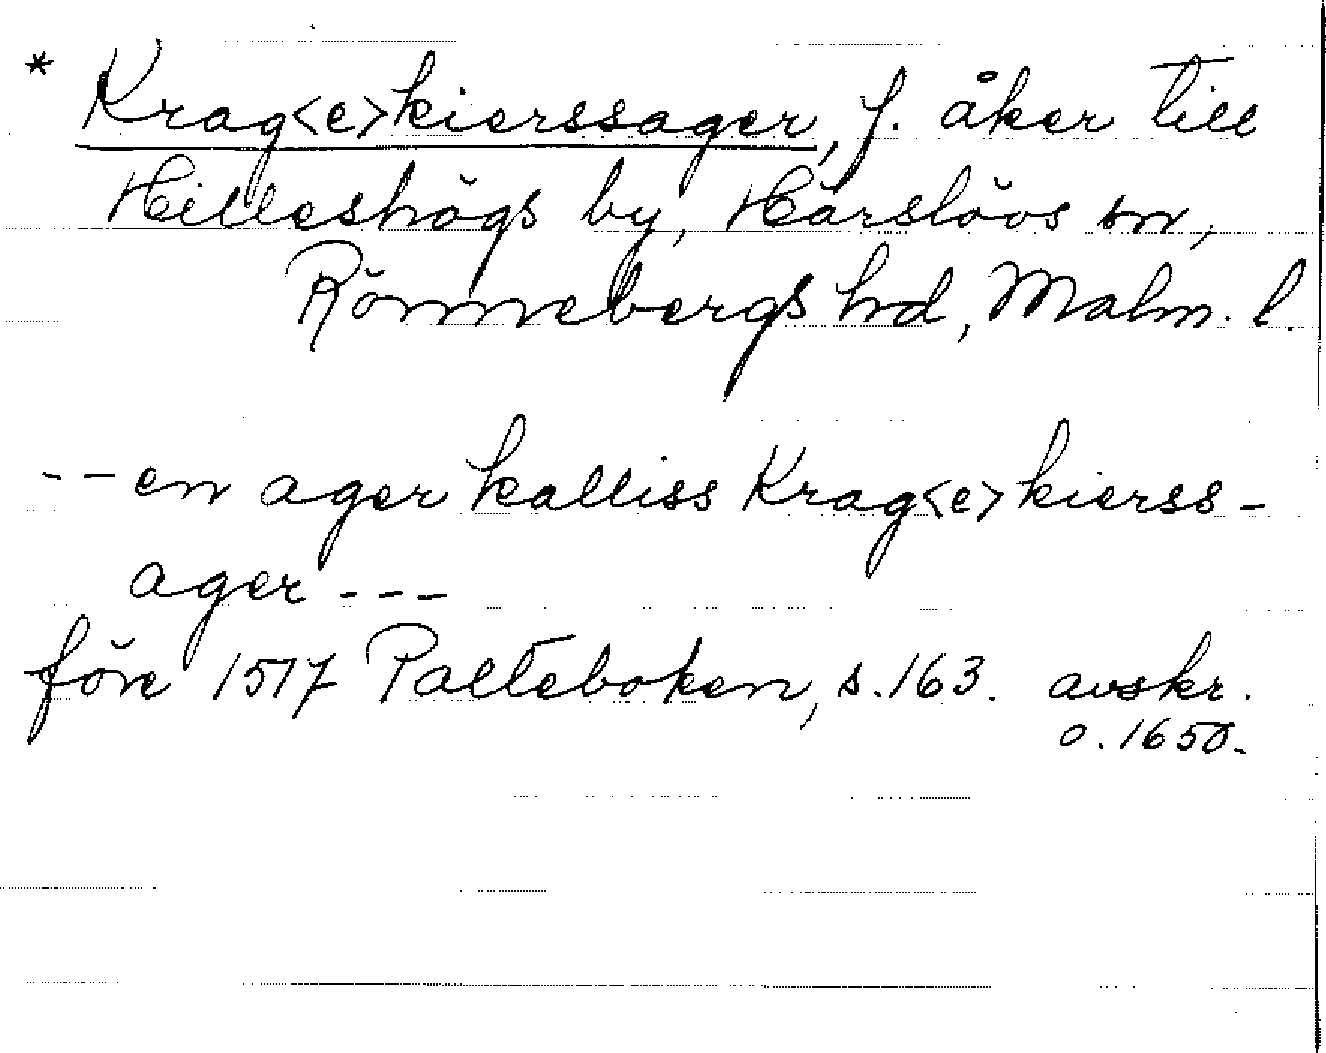 * Krag<e>kierssager, f. åker till
Hilleshögs by, Härslövs sn,
Rönnebergs hd, Malm. l.
-- en ager kalliss Krag<e>kierss-
ager ---
före 1517 Palteboken, s. 163. avskr.
o. 1650.